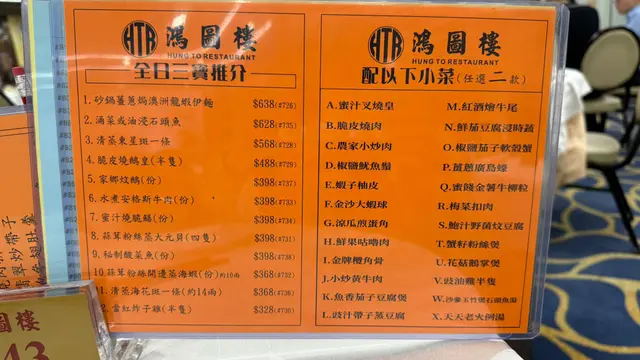 HTR 鴻圖樓
HUNG TO RESTAURANT
全日三寶推介
1. 砂鍋薑蔥焗澳洲龍蝦伊麵 $638(#726)
2. 涌菜或油浸石頭魚 $628(#735)
3. 清蒸東星斑一條 $568(#728)
4. 脆皮燒鵝皇(半隻) $488(#729)
5. 家鄉炆鵝(份) $398(#737)
6. 水煮安格斯牛肉(份) $398(#733)
7. 蜜汁燒脆鱔(份) $398(#734)
8. 蒜茸粉絲蒸大元貝(四隻) $398(#731)
9. 秘制酸菜魚(份) $398(#739)
10. 蒜茸粉絲開邊蒸海蝦(份)約10両 $368(#732)
11. 清蒸海花斑一條(約14両) $368(#736)
12. 當紅炸子雞(半隻) $328(#730)
HTR 鴻圖樓
HUNG TO RESTAURANT
配以下小菜(任選二款)
A. 蜜汁叉燒皇
B. 脆皮燒肉
C. 農家小炒肉
D. 椒鹽魷魚鬚
E. 蝦子柚皮
F. 金沙大蝦球
G. 涼瓜煎蛋角
H. 鮮果咕嚕肉
I. 金牌欖角骨
J. 小炒黃牛肉
K. 魚香茄子豆腐煲
L. 豉汁帶子蒸豆腐
M. 紅酒燴牛尾
N. 鮮茄豆腐浸時蔬
O. 椒鹽茄子軟殼蟹
P. 薑蔥廣島蠔
Q. 蜜餞金薯牛柳粒
R. 梅菜扣肉
S. 鮑汁野菌炆豆腐
T. 蟹籽粉絲煲
U. 花菇鵝掌煲
V. 豉油雞半隻
W. 沙參玉竹煲石頭魚湯
X. 天天老火例湯
圖樓
43